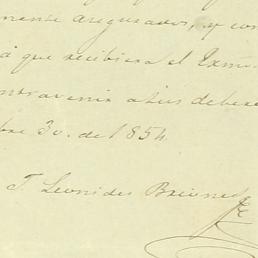 mente asegurados, y con
á que recibiera el Exmo.
ontravenir a sus debere
bre 30. de 1854
T. Leonides Briones